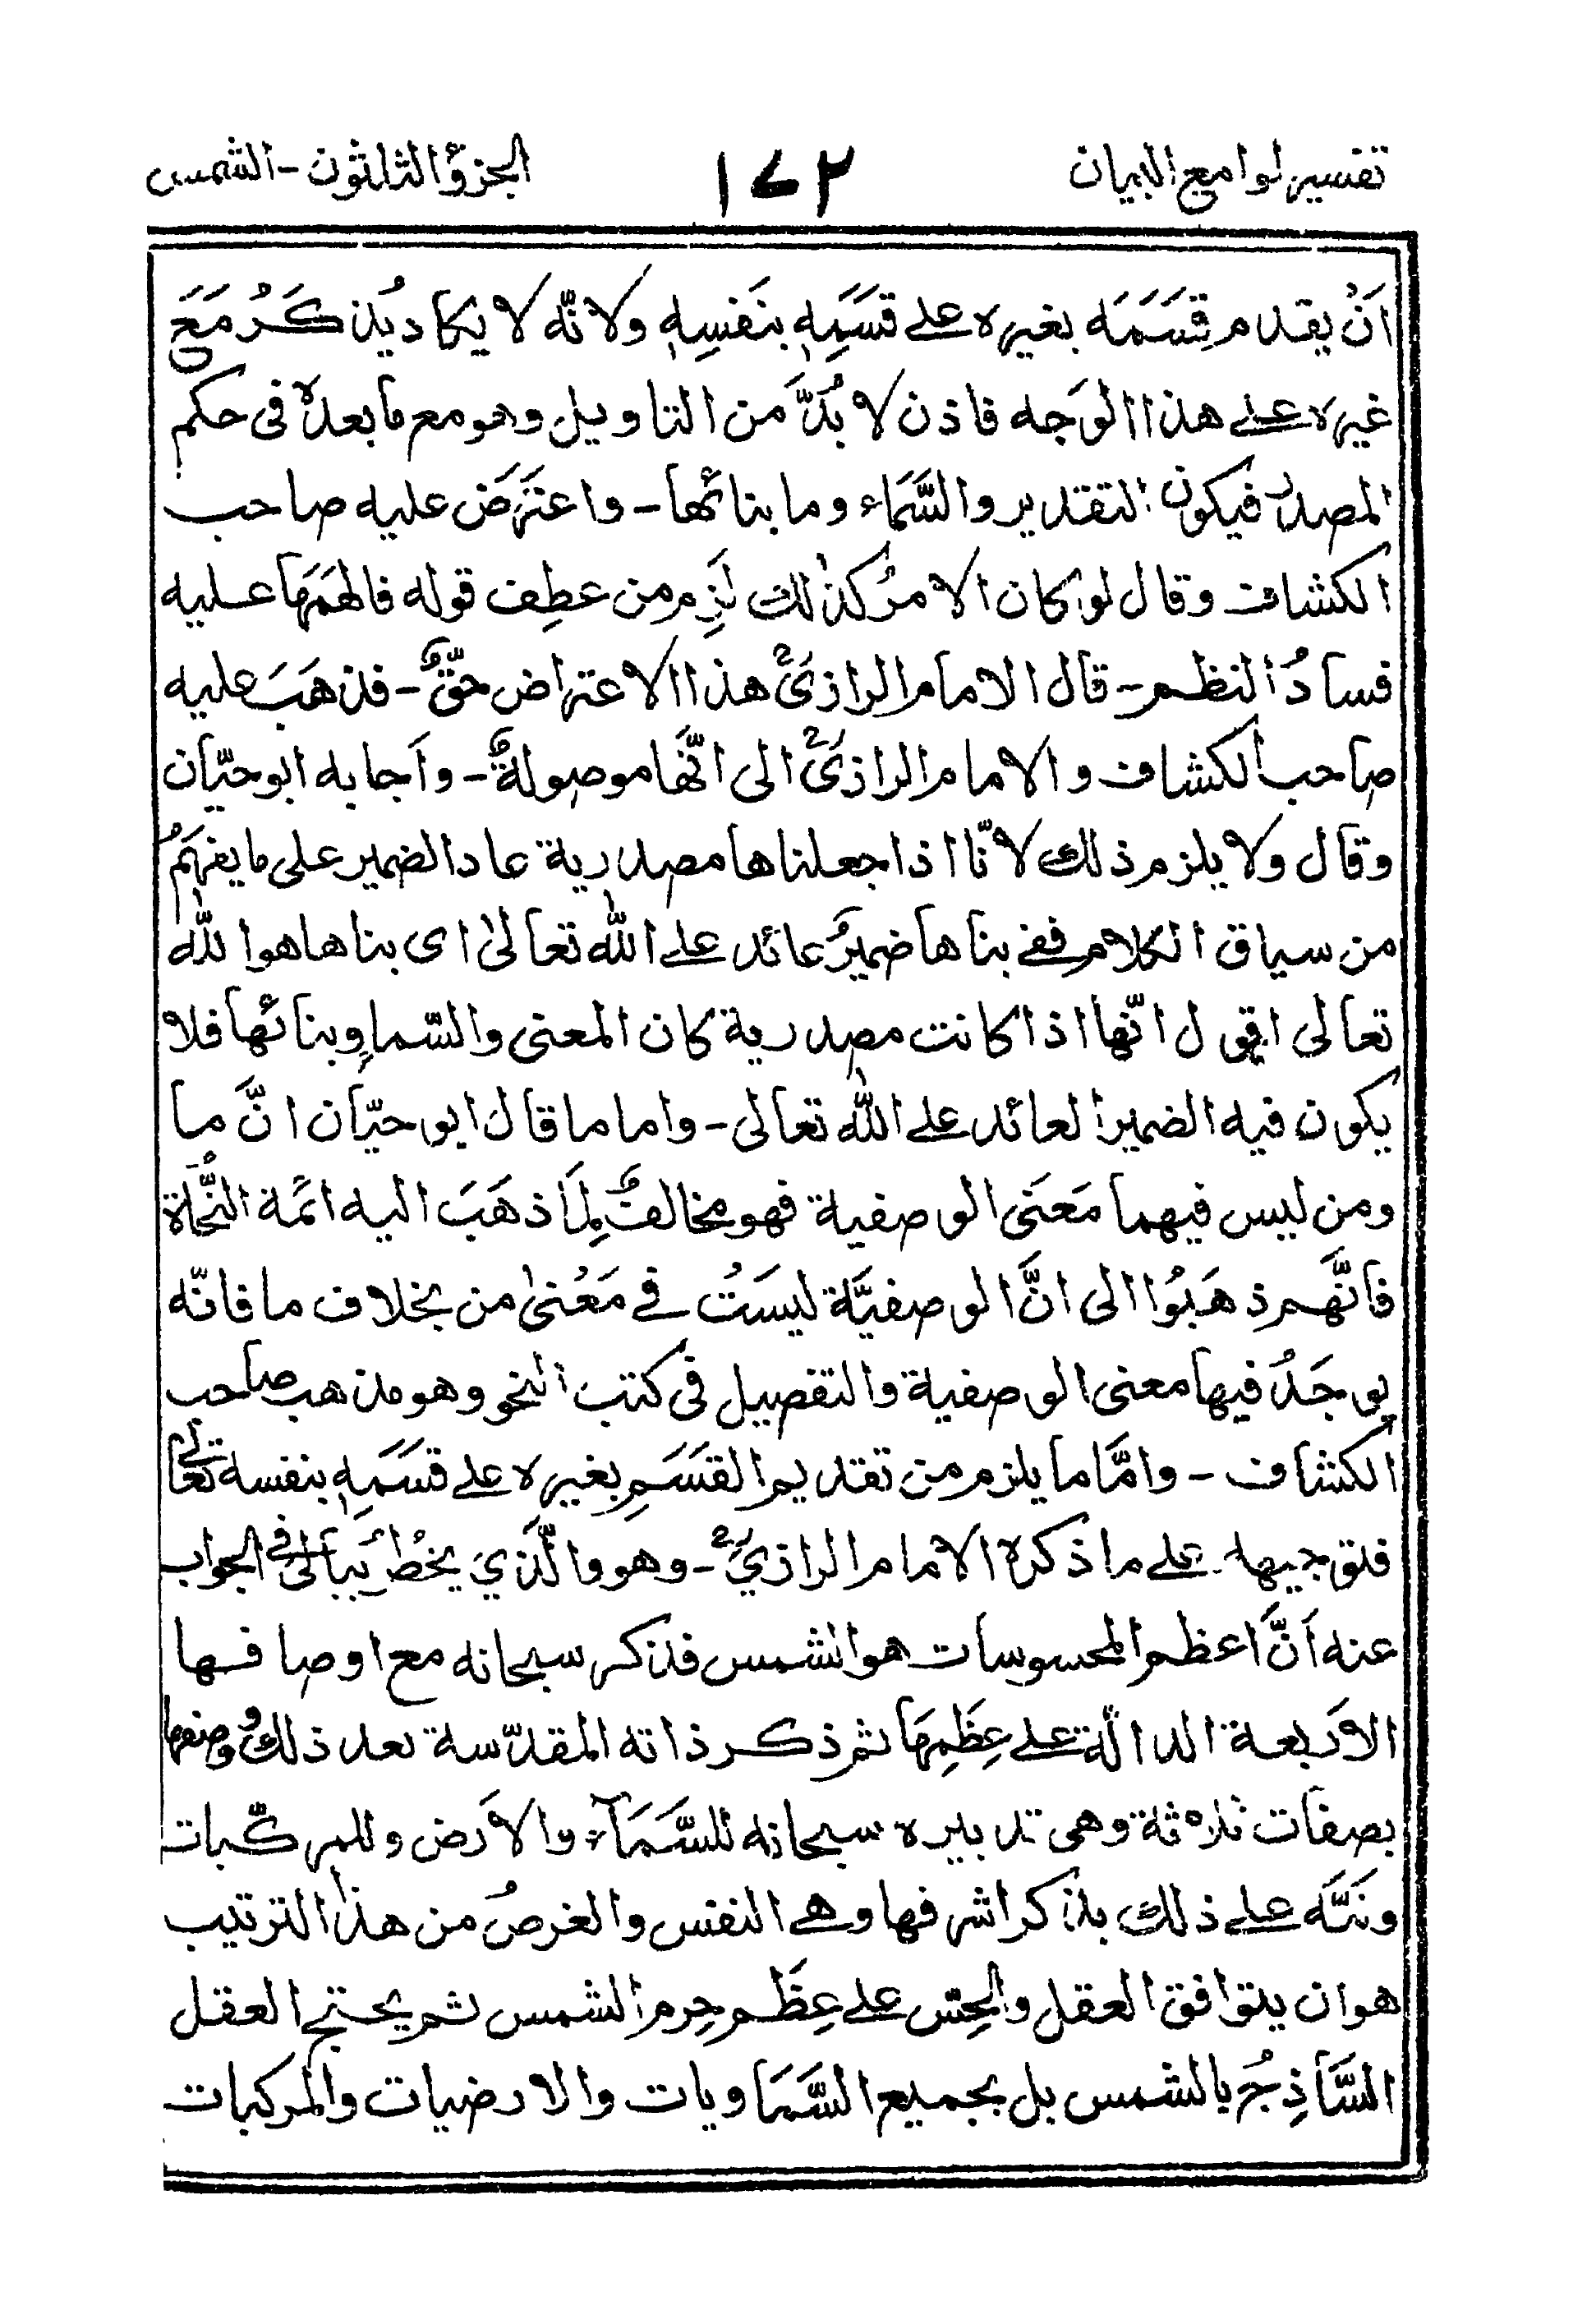 تفسير لوامع البيان ١٧٢ الجزؤ الثلثون - الشمس
اَنْ يقدم قَسَمَه بغيره على قَسَمِهٖ بنَفسِهٖ ولانّه لا يكاد يُذكَرُ مَعَ
غيره على هذا الوَجه فاذن لا بُدَّ من التاويل وهو مع ما بعده فى حكم
المصدر فيكون التقدير والسَّمَاء وما بنائها - واعتَرَض عليه صاحب
الكشاف وقال لو كان الامرُ كذٰلك لَزِم من عطِف قوله فالهَمَهَا عليه
فسادُ النظم - قال الامام الرازىؒ هذا الاعتراض حقٌّ - فذهَبَ عليه
صاحب الكشاف والامام الرازىؒ الى انّها موصولةٌ - واَجابه ابو حيّان
وقال ولا يلزم ذلك لانّا اذا جعلناها مصدرية عاد الضمير على ما يفهَمُ
من سياق الكلام ففى بناها ضميرُ عائد على اللّٰه تعالىٰ اى بناها هو اللّٰه
تعالى اقول انّها اذا كانت مصدرية كان المعنى والسّماءِ وبنائها فلا
يكون فيه الضمير العائد على اللّٰه تعالى - واما ما قال ابو حيّان انَّ ما
ومن ليس فيهما مَعنَى الوصفية فهو مخالفٌ لِمَا ذهَبَ اليه ائمة النُّحَاة
فانَّهم ذهَبُوا الى انَّ الوصفيَّة ليسَتُ فى مَعْنىٰ من بخلاف ما فانّه
يوجَدُ فيها معنى الوصفية والتفصيل فى كتب النحو وهو مذهب صاحب
الكشاف - وامَّا ما يلزم من تقديم القَسَمِ بغيره على قَسَمِهٖ بنفسه تعالى
فتوجيها على ما ذكره الامام الرازىؒ - وهو والَّذي يخطُر ببالى فى الجواب
عنه اَنَّ اعظم المحسوسات هو الشمس فذكر سبحانه مع اوصافها
الاربعة الدالّة على عِظَمِهَا ثم ذكر ذاته المقدّسة بعد ذلك ووصفها
بصفات ثلاثة وهى تدبيره سبحانه للسَّمَآء والارض وللمركّبات
ونبَّه على ذلك بذكر اشرفها وهى النفس والغرضُ من هذا الترتيب
هو ان يتوافق العقل والحِسّ على عِظَم جِرم الشمس ثم يحتج العقل
السَّاذِجُ بالشمس بل بجميع السَّمَاويات والارضيات والمركبات